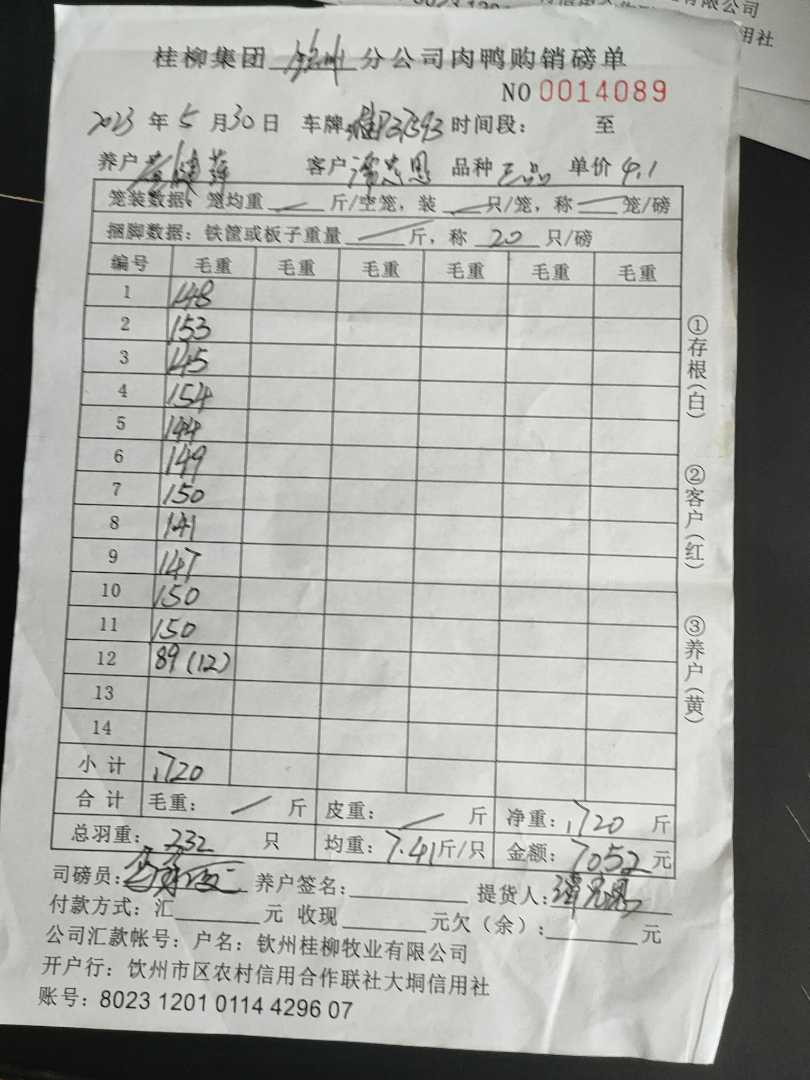 桂柳集团 钦州 分公司肉鸭购销磅单
NO 0014089
2023 年 5 月 30 日 车牌 桂P37593 时间段： 至
养户 客户 品种 三品 单价 4.1
笼装数据：笼均重 斤/空笼，装 只/笼，称 笼/磅
捆脚数据：铁筐或板子重量 斤，称 20 只/磅
编号 毛重 毛重 毛重 毛重 毛重 毛重
1 148
2 153
3 145
4 154
5 144
6 149
7 150
8 141
9 147
10 150
11 150
12 89(12)
13
14
小计 1720
合计 毛重： 斤 皮重： 斤 净重：1720 斤
总羽重：232 只 均重：7.41斤/只 金额：7052元
司磅员： 养户签名： 提货人：
付款方式：汇 元 收现 元欠（余）： 元
公司汇款帐号：户名：钦州桂柳牧业有限公司
开户行：饮州市区农村信用合作联社大垌信用社
账号：8023 1201 0114 4296 07
①存根（白）
②客户（红）
③养户（黄）
有限公司
用社